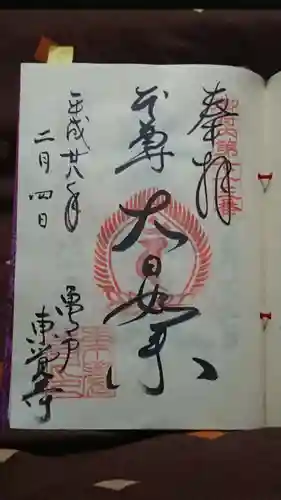 奉拝
本尊 大日如来
亀戸 東覚寺
平成廿八年
二月四日